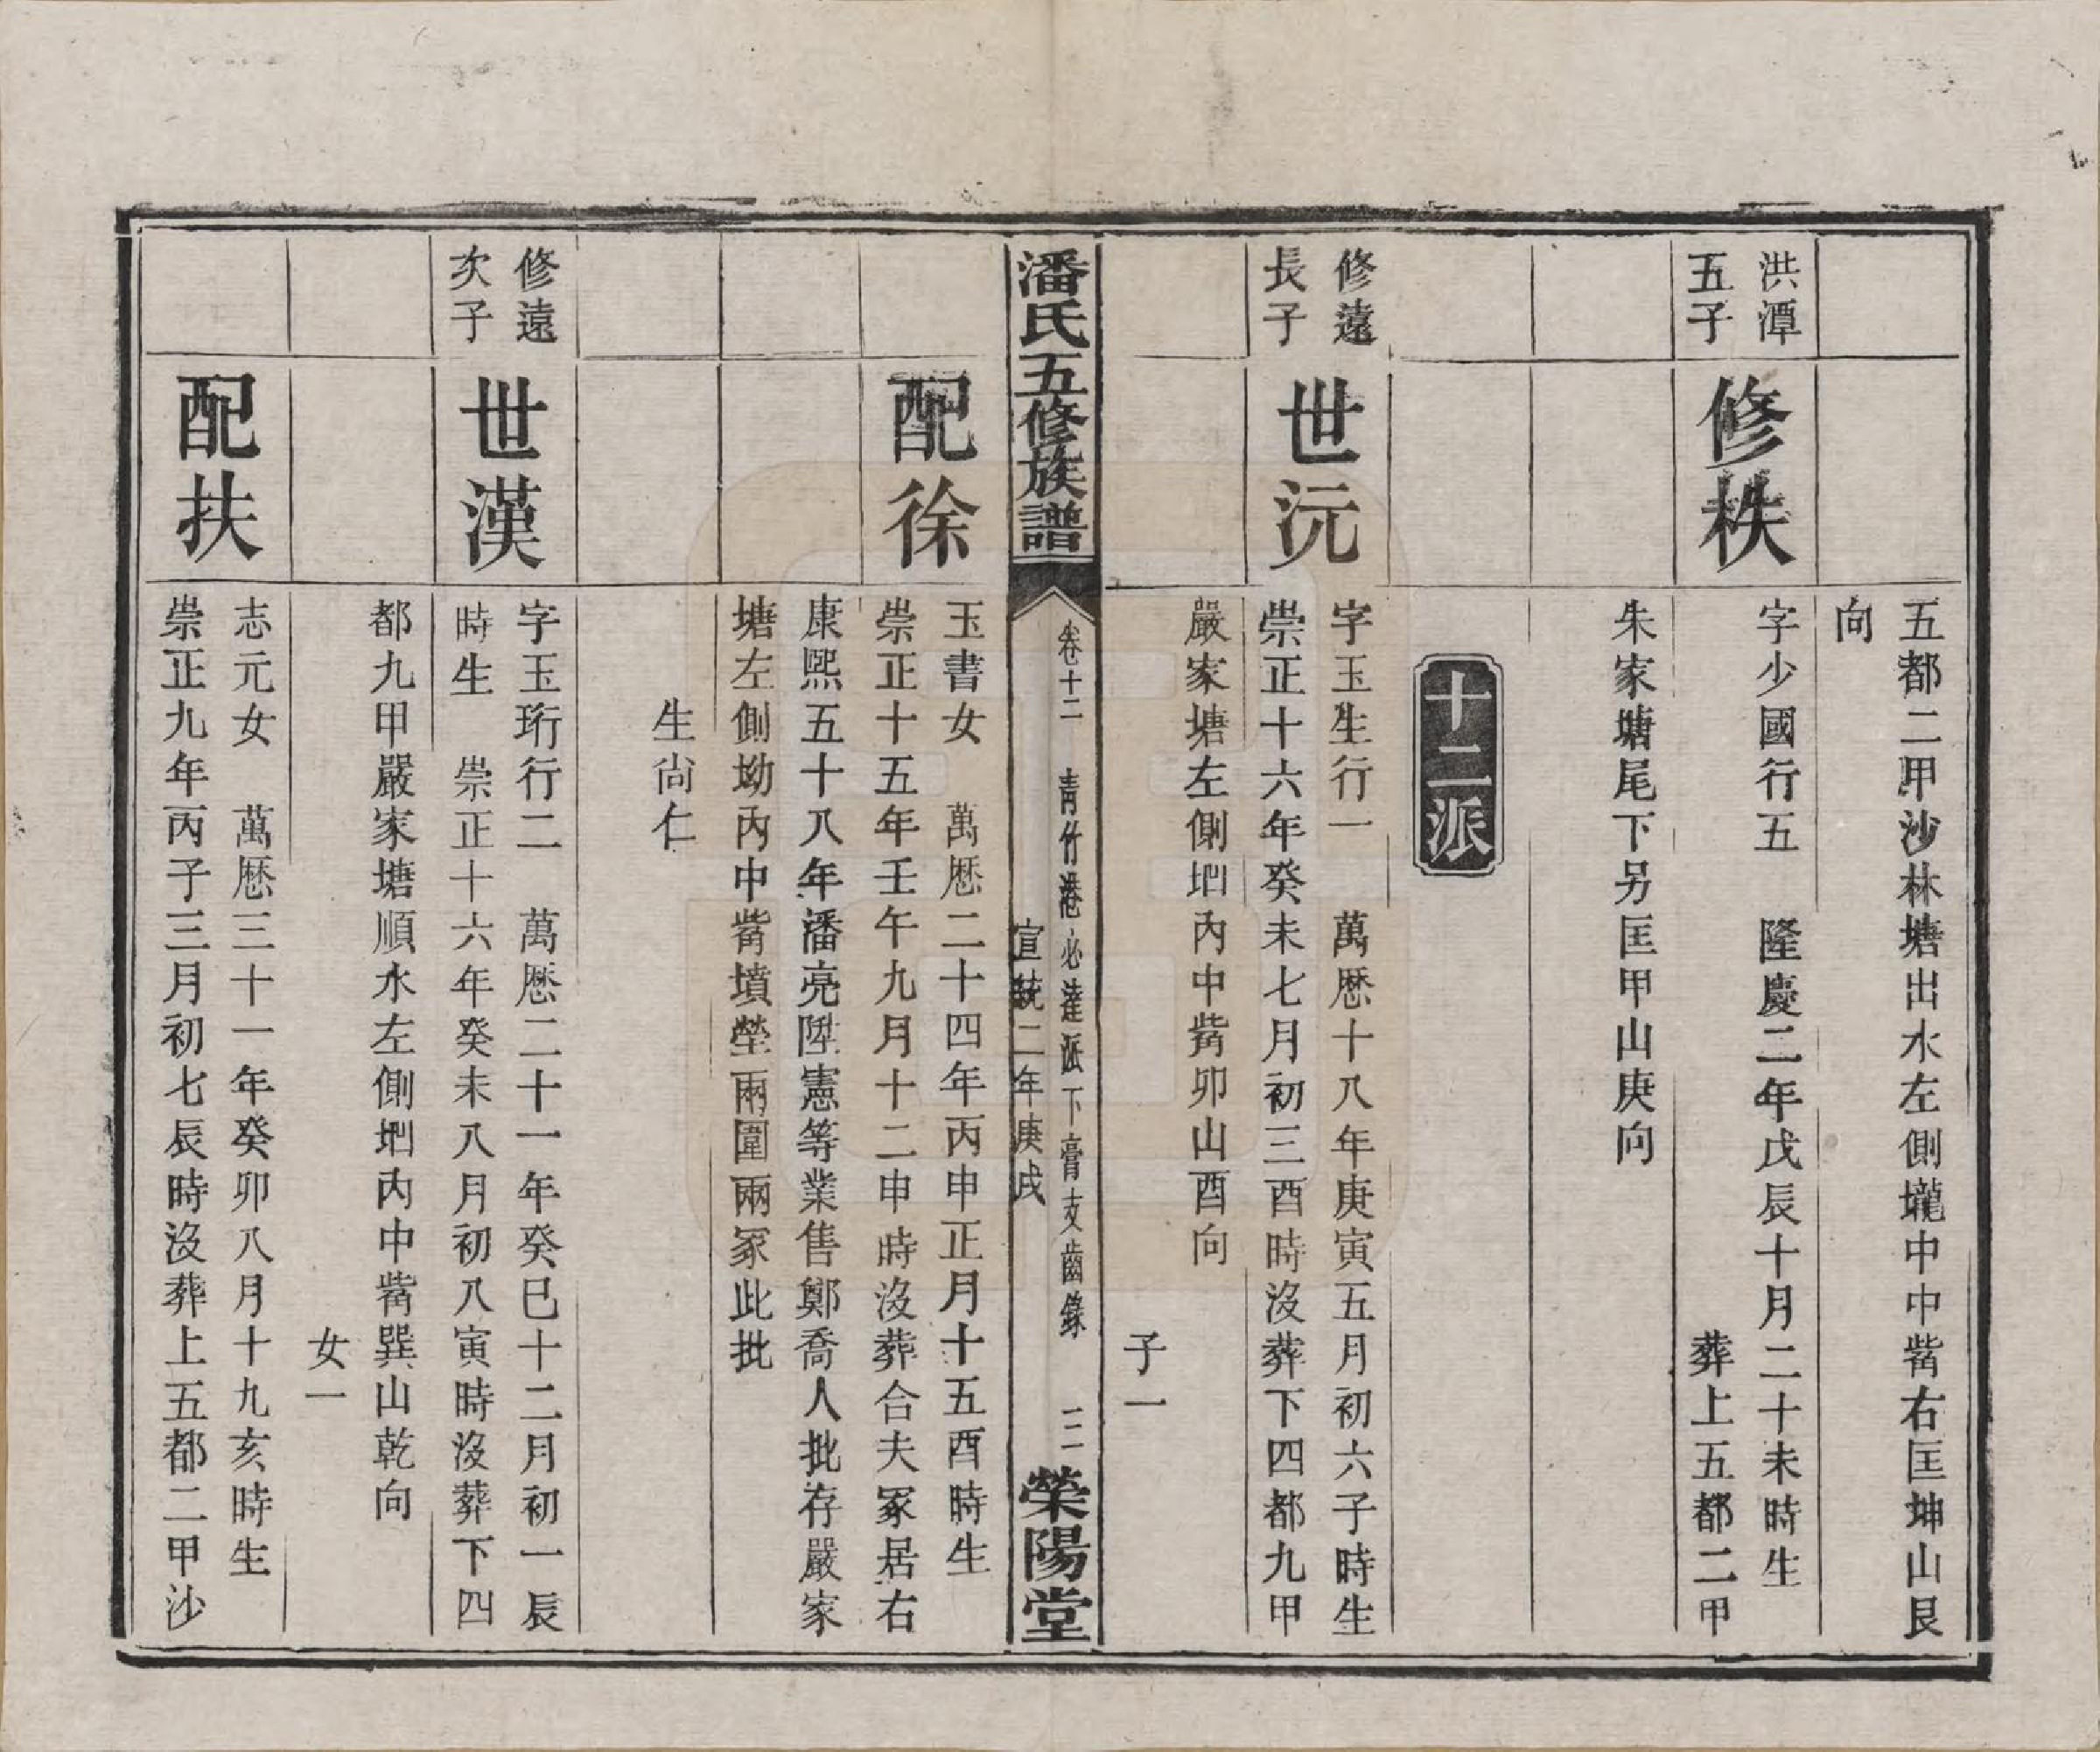 五都二甲沙林塘出水左側壠中中嘴右匡坤山艮
向
洪潭
五子
修秩
字少國行五　隆慶二年戊辰十月二十未時生
葬上五都二甲
朱家塘尾下另匡甲山庚向
十二派
修遠
長子
世沅
字玉生行一　萬歷十八年庚寅五月初六子時生
崇正十六年癸未七月初三酉時沒葬下四都九甲
嚴家塘左側𡉏內中嘴卯山酉向
子一
潘氏五修族譜
卷十二　青竹港必達派下膏支齒錄　三
榮陽堂
宣統二年庚戌
配徐
玉書女　萬歷二十四年丙申正月十五酉時生
崇正十五年壬午九月十二申時沒葬合夫冢居右
康熙五十八年潘亮陞憲等業售鄭喬人批存嚴家
塘左側坳內中嘴墳塋兩圍兩冢此批
生尚仁
修遠
次子
世漢
字玉珩行二　萬歷二十一年癸巳十二月初一辰
時生　崇正十六年癸未八月初八寅時沒葬下四
都九甲嚴家塘順水左側𡉏內中嘴巽山乾向
女一
配扶
志元女　萬歷三十一年癸卯八月十九亥時生
崇正九年丙子三月初七辰時沒葬上五都二甲沙